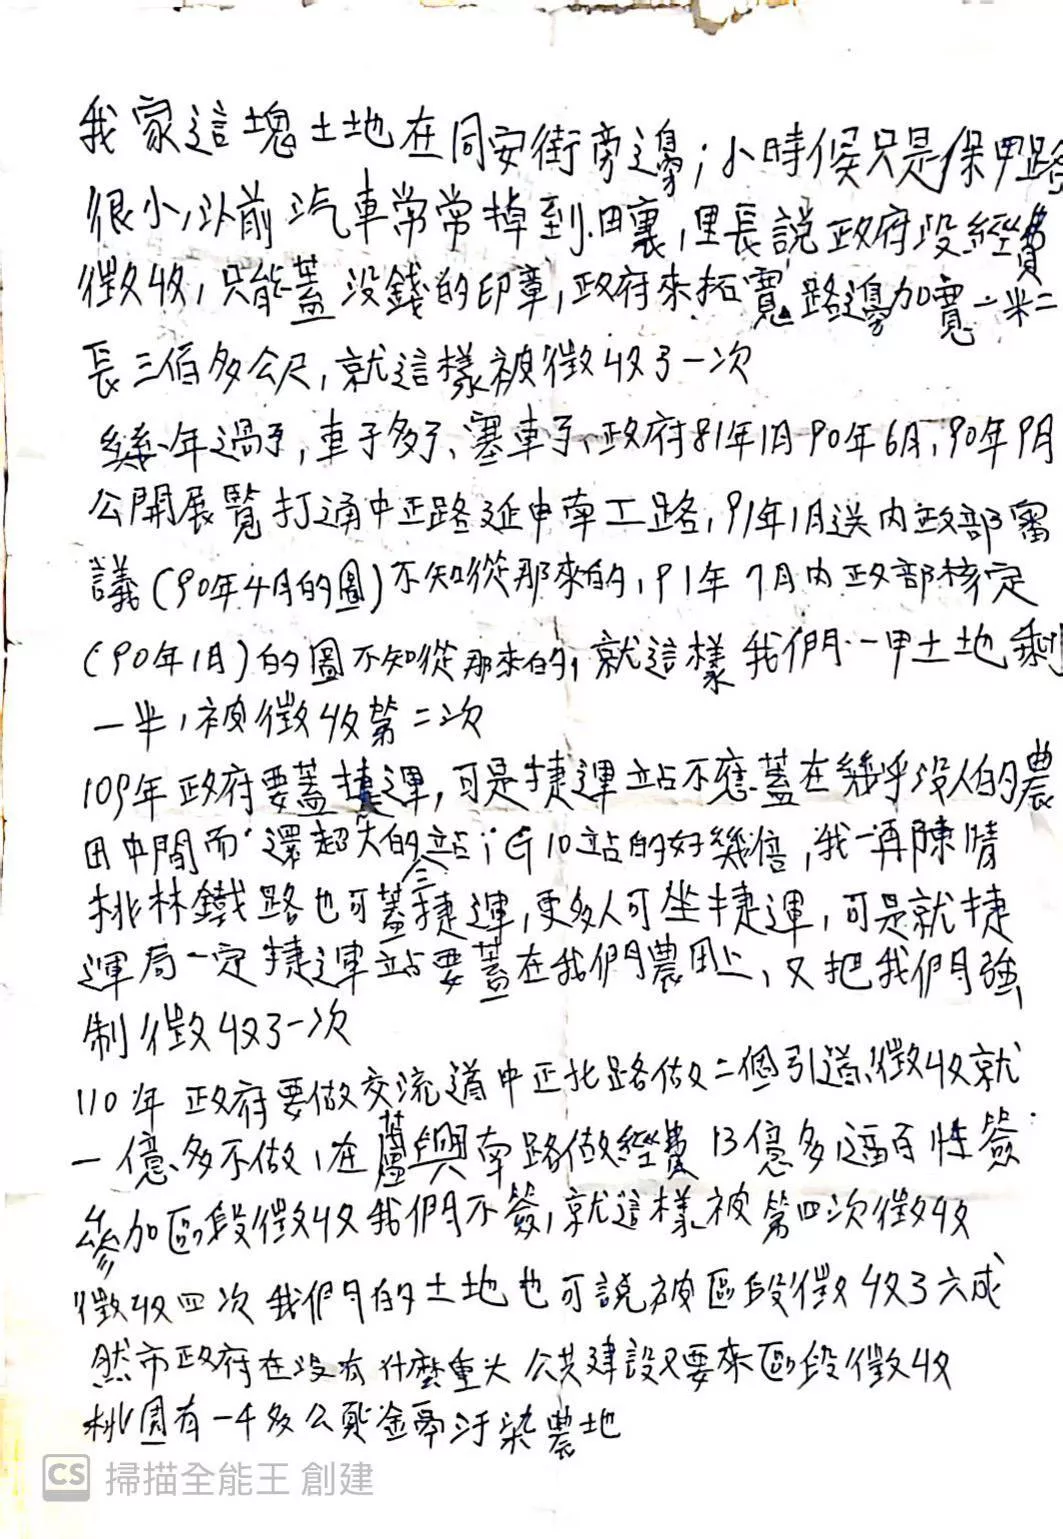 我家這塊土地在同安街旁邊；小時候只是保甲路
很小，以前汽車常常掉到田裏，里長說政府没經費
徵收，只能蓋没錢的印章，政府來拓寬路邊加寬一米二
長三佰多公尺，就這樣被徵收了一次
幾年過了，車子多了、塞車了、政府81年1月90年6月，90年9月
公開展覽打通中正路延申南工路，91年1月送内政部審
議(90年4月的圖)不知從那來的，91年7月内政部核定
(90年1月)的圖不知從那來的，就這樣我們一甲土地剩
一半，被徵收第二次
109年政府要蓋捷運，可是捷運站不應蓋在幾乎没人的農
田中間而還超大的站；G10站的好幾倍，我一再陳情
桃林鐵路也可蓋捷運，更多人可坐捷運，可是就捷
運局一定捷運站要蓋在我們農田上，又把我們強
制徵收了一次
110年政府要做交流道中正北路做二個引道，徵收就
一億多不做，在蘆興南路做經費13億多逼百性簽
參加區段徵收我們不簽，就這樣被第四次徵收
徵收四次我們的土地也可說被區段徵收了六成
然市政府在没有什麼重大公共建設又要來區段徵收
桃園有一千多公頃金鬲汙染農地
CS 掃描全能王 創建